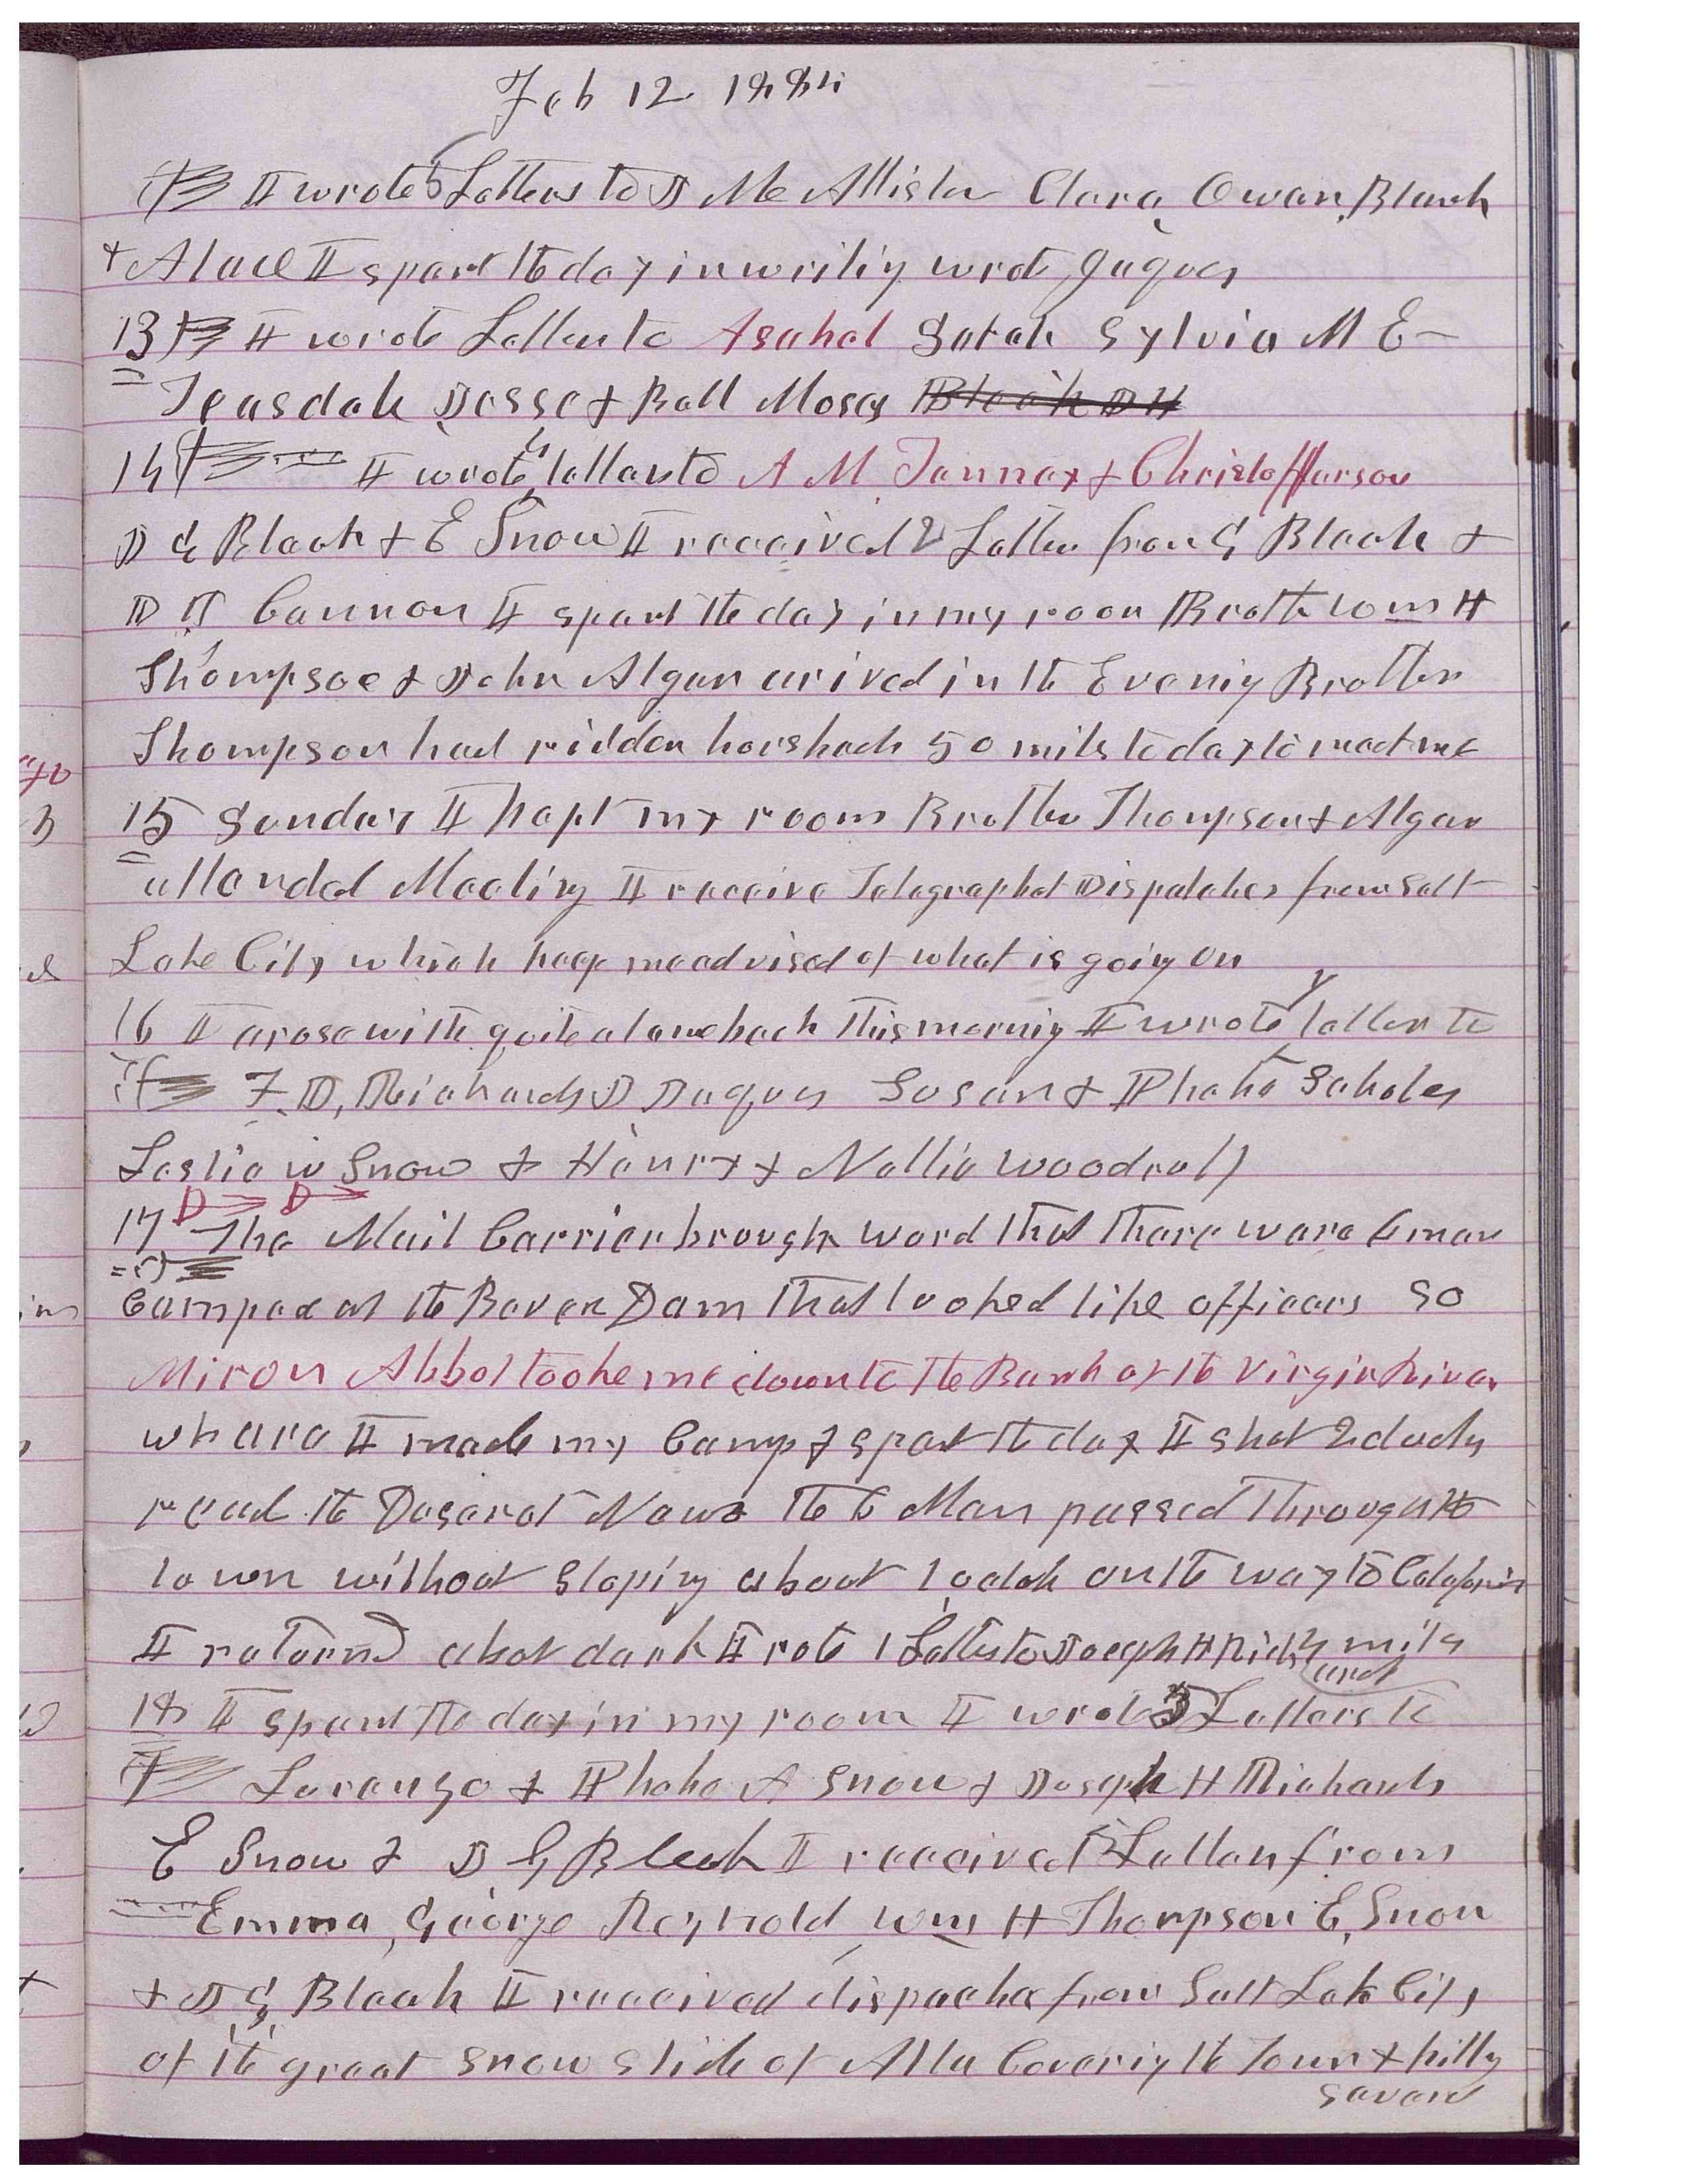 Feb 12 1884
I wrote 6 Letters to J McAllister Clara, Owen, Bleak
& Alice I spent the day in writing wrote Jaques
13 I wrote Letters to Asahel Sarah Sylvia M E
Teasdale Jesse & Bell Moses Bleak J H
14 I wrote 4 letters to A M Tenney & Christofferson
J G Bleak & E Snow I received 2 Letters from G Bleak &
D H Cannon I spent the day in my room Brother Wm H
Thompson & John Alger arived in the Evening Brother
Thompson had ridden horsback 50 mils to day to meet me
15 Sunday I kept my room Brother Thompson & Alger
attended Meeting I receive Telegraphet Dispatches from Salt
Lake City which keep me advised of what is going on
16 I arose with quite a lame back this morning I wrote letters to
F. D. Richards J Jaques Susan & Phebe Scholes
Leslie W Snow & Henry & Nellie Woodruff
17 The Mail Carrier brough word that there were 6 men
Camped at the Bever Dam that looked like officers So
Miron Abbot tooke me down to the Bank of the Virgin River
where I made my Camp & spent the day I shot 2 ducks
read the Deseret News the 6 Men passed through the
town without stoping about 1 oclok on the way to Calafornia
I returnd about dark I rote 1 Letter to Joseph H Rich 4 mils
18 I spent the day in my room I wrote 3 Letters to
Lorenzo & Phebe A Snow & Joseph H Richards
E Snow & J G Bleak I received 5 Letters from
Emma, George Reynold Wm H Thompson E, Snow
& J G, Bleak I received dispaches from Salt Lake City
of the great snow slide of Alta Covering the Town & killing
seven